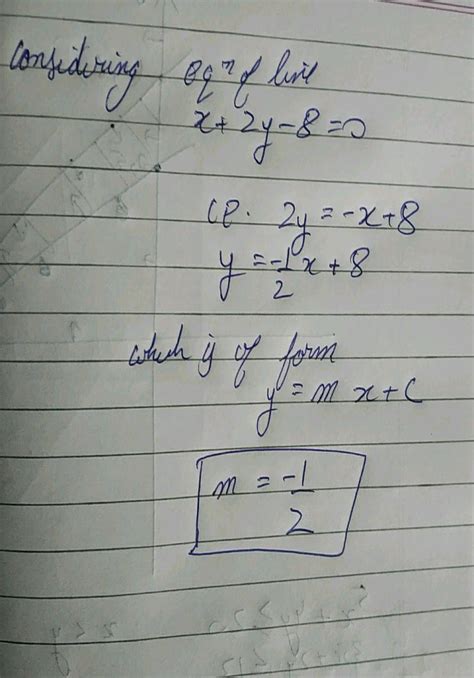 Considering eqⁿ of line
x + 2y - 8 = 0
i.e. 2y = -x + 8
y = -1/2 x + 8
which is of form
y = m x + c
m = -1/2